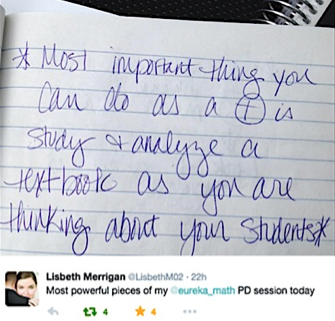 * Most important thing you
can do as a Ⓣ is
study & analyze a
textbook as you are
thinking about your students*
Lisbeth Merrigan @LisbethM02 · 22h
Most powerful pieces of my @eureka_math PD session today
4 4